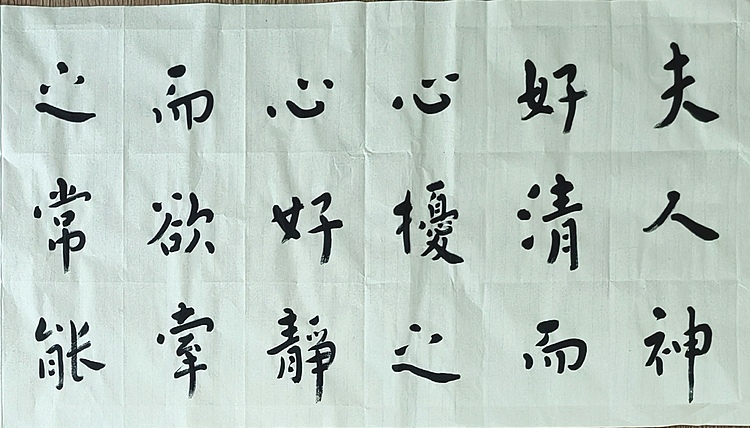 夫人神
好清而
心擾之
心好靜
而欲牽
之常能